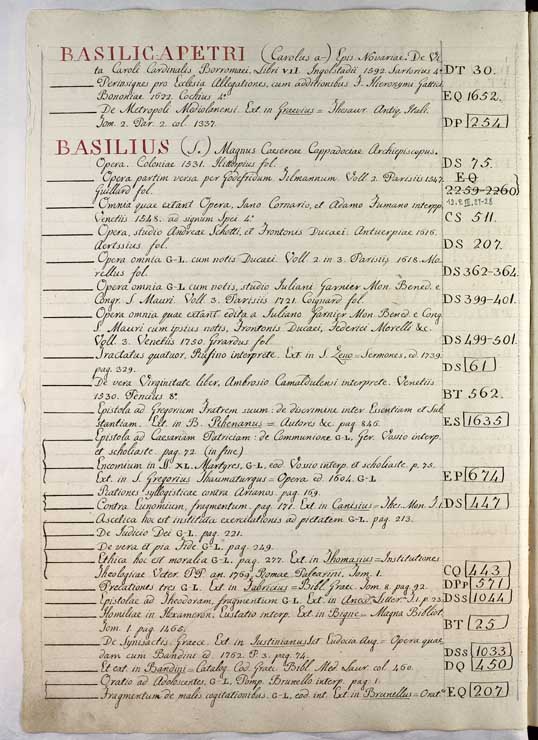 BASILICAPETRI (Carolus a-) Epis. Novariae. De Vi
ta Caroli Cardinalis Borromaei. Libri VII. Ingolstadii 1592. Sartorius 4° DT 30.
Perinsignes pro Eclesia Allegationes, cum additionibus J. Hieronymi Gattici
Bononiae 1622. Cochius 4° EQ 1652.
De Metropoli Mediolanensi. Ext. in Graevius = Thesaur. Antiq. Itali.
Tom. 2. Par. 2. col. 1337. DP 254
BASILIUS (S.) Magnus Caesereae Cappadociae Archiepiscopus.
Opera. Coloniae 1531. fol. DS 75.
Opera partim versa per Godefridum Tilmannum. Voll. 2. Parisiis 1547. EQ
Guillard fol. 2259-2260
Omnia quae extant Opera, Jano Cornario, et Adamo Fumano interpp. 
Venetiis 1548. ad signum Spei 4° CS 511.
Opera, studio Andreae Schotti, et Frontonis Ducaei. Antuerpiae 1616.
Aertssius fol. DS 207.
Opera omnia G-L cum notis Ducaei. Voll. 2. in 3. Parisiis 1618. Mo
rellus fol. DS 362-364.
Opera omnia G-L cum notis, studio Juliani Garnier Mon. Bened. e
Congr. S. Mauri. Voll. 3. Parisiis 1721. Coignard fol. DS 399-401.
Opera omnia quae extant edita a Juliano Garnier Mon. Bened. e Cong.
S. Mauri cum ipsius notis, Frontonis Ducaei, Federici Morelli &c.
Voll. 3. Venetiis 1750. Girardus fol. DS 499-501.
Tractatus quatuor, Rufino interprete. Ext. in S. Zeno = Sermones, ed. 1739.
pag. 329. DS 61
De vera Virginitate liber, Ambrosio Camaldulensi interprete. Venetiis
1530. 8° BT 562.
Epistola ad Gregorium Fratrem suum: de discrimine inter Essentiam et Sub
stantiam. Ext. in B. = Autores &c. pag. 846. ES 1635
Epistola ad Caesariam Patriciam: de Communione G-L. Ger. Vossio interp.
et scholiaste. pag. 72. (in fine)
Encomium in SS. XL. Martyres, G-L, eod. Vossio interp. et scholiaste. p. 75.
Ext. in S. Gregorius Thaumaturgus = Opera ed. 1604. G-L EP 674
Rationes syllogisticae contra Arianos. pag. 169.
Contra Eunomium, fragmentum. pag. 171. Ext. in Canisius = Thes. Mon. T. 1. DS 447
Ascetica hoc est instituta exercitationes ad pietatem G-L. pag. 213.
De Judicio Dei G-L. pag. 221.
De vera et pia Fide G-L. pag. 249.
Ethica hoc est moralia G-L. pag. 277. Ext. in Thomasius = Institutiones
Theologicae Veter. PP. an. 1769. Romae. Palearini, Tom. 1. CQ 443
Praelationes tres G-L. Ext. in Fabricius = Bibl. Graec. Tom. 8. pag. 92. DPp 571
Epistolae ad Theodoram, fragmentum G-L. Ext. in Litter. T. 1. p. 23. DSS 1044
Homiliae in Hexameron, Eustatio interp. Ext. in Bigne = Magna Biblioth.
Tom. 1. pag. 1466. BT 25
De Synisactis: Graece. Ext. in Justinianus et Eudocia Aug. = Opera quae
dam cum Bandini ed. 1762. P. 3. pag. 74. DSS 1033
Et ext. in Bandini = Catalog. Cod. Graec. Bibl. Med. Laur. col. 460. DQ 450
Oratio ad Adolescentes, G-L. Pomp. Brunello interp. pag. 1.
Fragmentum de malis cogitationibus, G-L. eod. int. Ext. in Brunellus = Orat. EQ 207